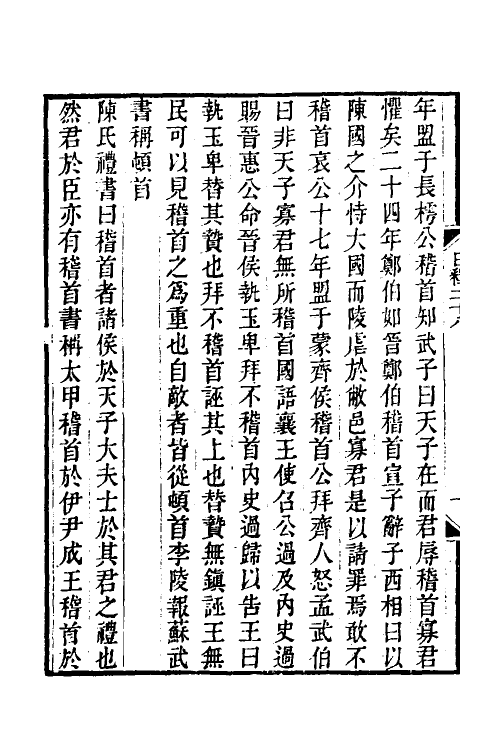 年盟于長樗公稽首知武子曰天子在而君辱稽首寡君
懼矣二十四年鄭伯如晉鄭伯稽首宣子辭子西相曰以
陳國之介恃大國而陵虐於敝邑寡君是以請罪焉敢不
稽首哀公十七年盟于蒙齊侯稽首公拜齊人怒孟武伯
曰非天子寡君無所稽首國語襄王使召公過及內史過
賜晉惠公命晉侯執玉卑拜不稽首內史過歸以告王曰
執玉卑替其贄也拜不稽首誣其上也替贄無鎭誣王無
民可以見稽首之爲重也自敵者皆從頓首李陵報蘇武
書稱頓首
陳氏禮書曰稽首者諸侯於天子大夫士於其君之禮也
然君於臣亦有稽首書稱太甲稽首於伊尹成王稽首於